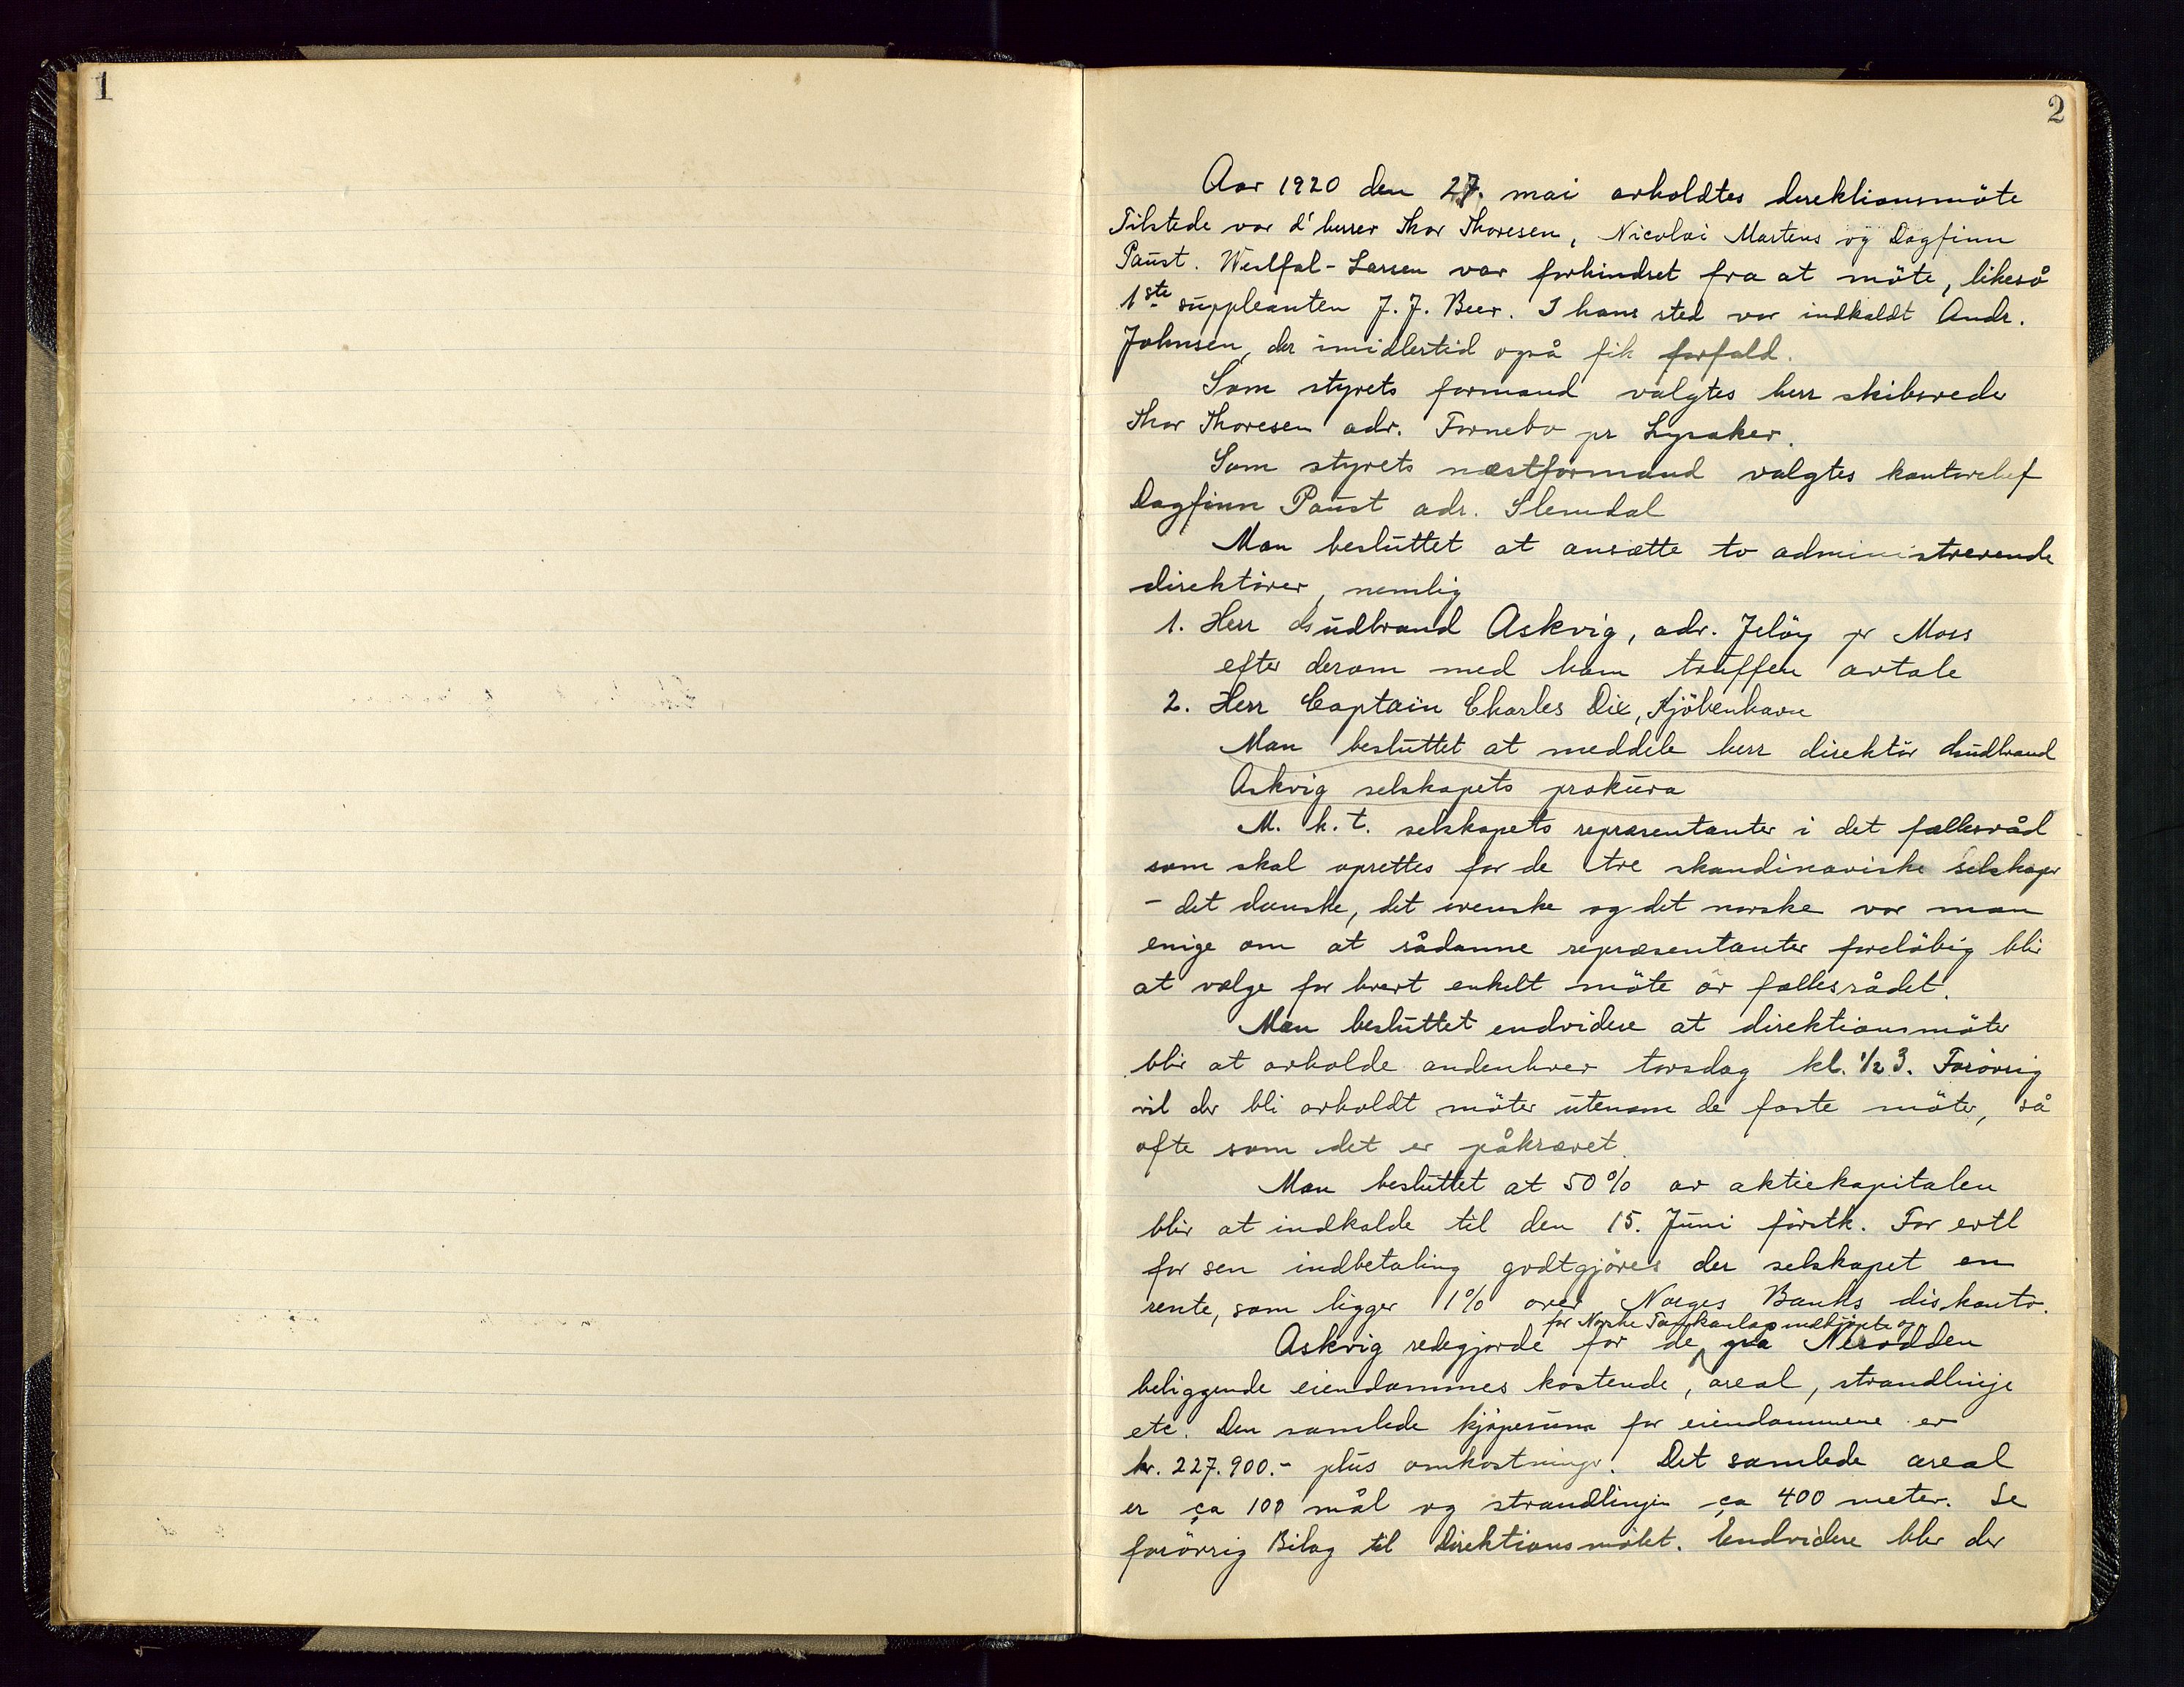 1
2
Aar 1920 den 27. mai avholdtes direktionsmöte
Tilstede var d'herrer Thor Thoresen, Nicolai Martens og Dagfinn
Paust. Westfal-Larsen var forhindret fra at möte, likeså
1ste suppleanten J. J. Beer. I hans sted var indkaldt Andr.
Johnsen, der imidlertid også fik forfald.
Som styrets formand valgtes herr skibsreder
Thor Thoresen adr. Fornebo pr Lysaker.
Som styrets næstformand valgtes kontorchef
Dagfinn Paust adr. Slemdal
Man besluttet at ansætte to administrerende
direktörer, nemlig
1. Herr Gudbrand Askvig, adr. Jelöy pr Moss
efter derom med ham truffen avtale
2. Herr Captain Charles Dix, Kjöbenhavn
Man besluttet at meddele herr direktör Gudbrand
Askvig selskapets prokura
M. h. t. selskapets repræsentanter i det fællesråd
som skal oprettes for de tre skandinaviske selskaper
- det danske, det svenske og det norske var man
enige om at sådanne repræsentanter foreløbig blir
at vælge for hvert enkelt möte av fællesrådet.
Man besluttet endvidere at direktionsmöter
blir at avholde andenhver torsdag kl. 1/2 3. Forövrig
vil der bli avholdt möter utenom de faste möter, så
ofte som det er påkrævet.
Man besluttet at 50% av aktiekapitalen
blir at indkalde til den 15. Juni förstk. For evtl
for sen indbetaling godtgjöres der selskapet en
rente, som ligger 1% over Norges Banks diskonto.
for Norske Tankanlæg indkjöpte og
Askvig redegjorde for de på Nesodden
beliggende eiendommes kostende, areal, strandlinje
etc. Den samlede kjöpesum for eiendommene er
kr. 227.900.- plus omkostninger. Det samlede areal
er ca 100 mål og strandlinjen ca 400 meter. Se
forövrig Bilag til Direktionsmötet. Endvidere blev der